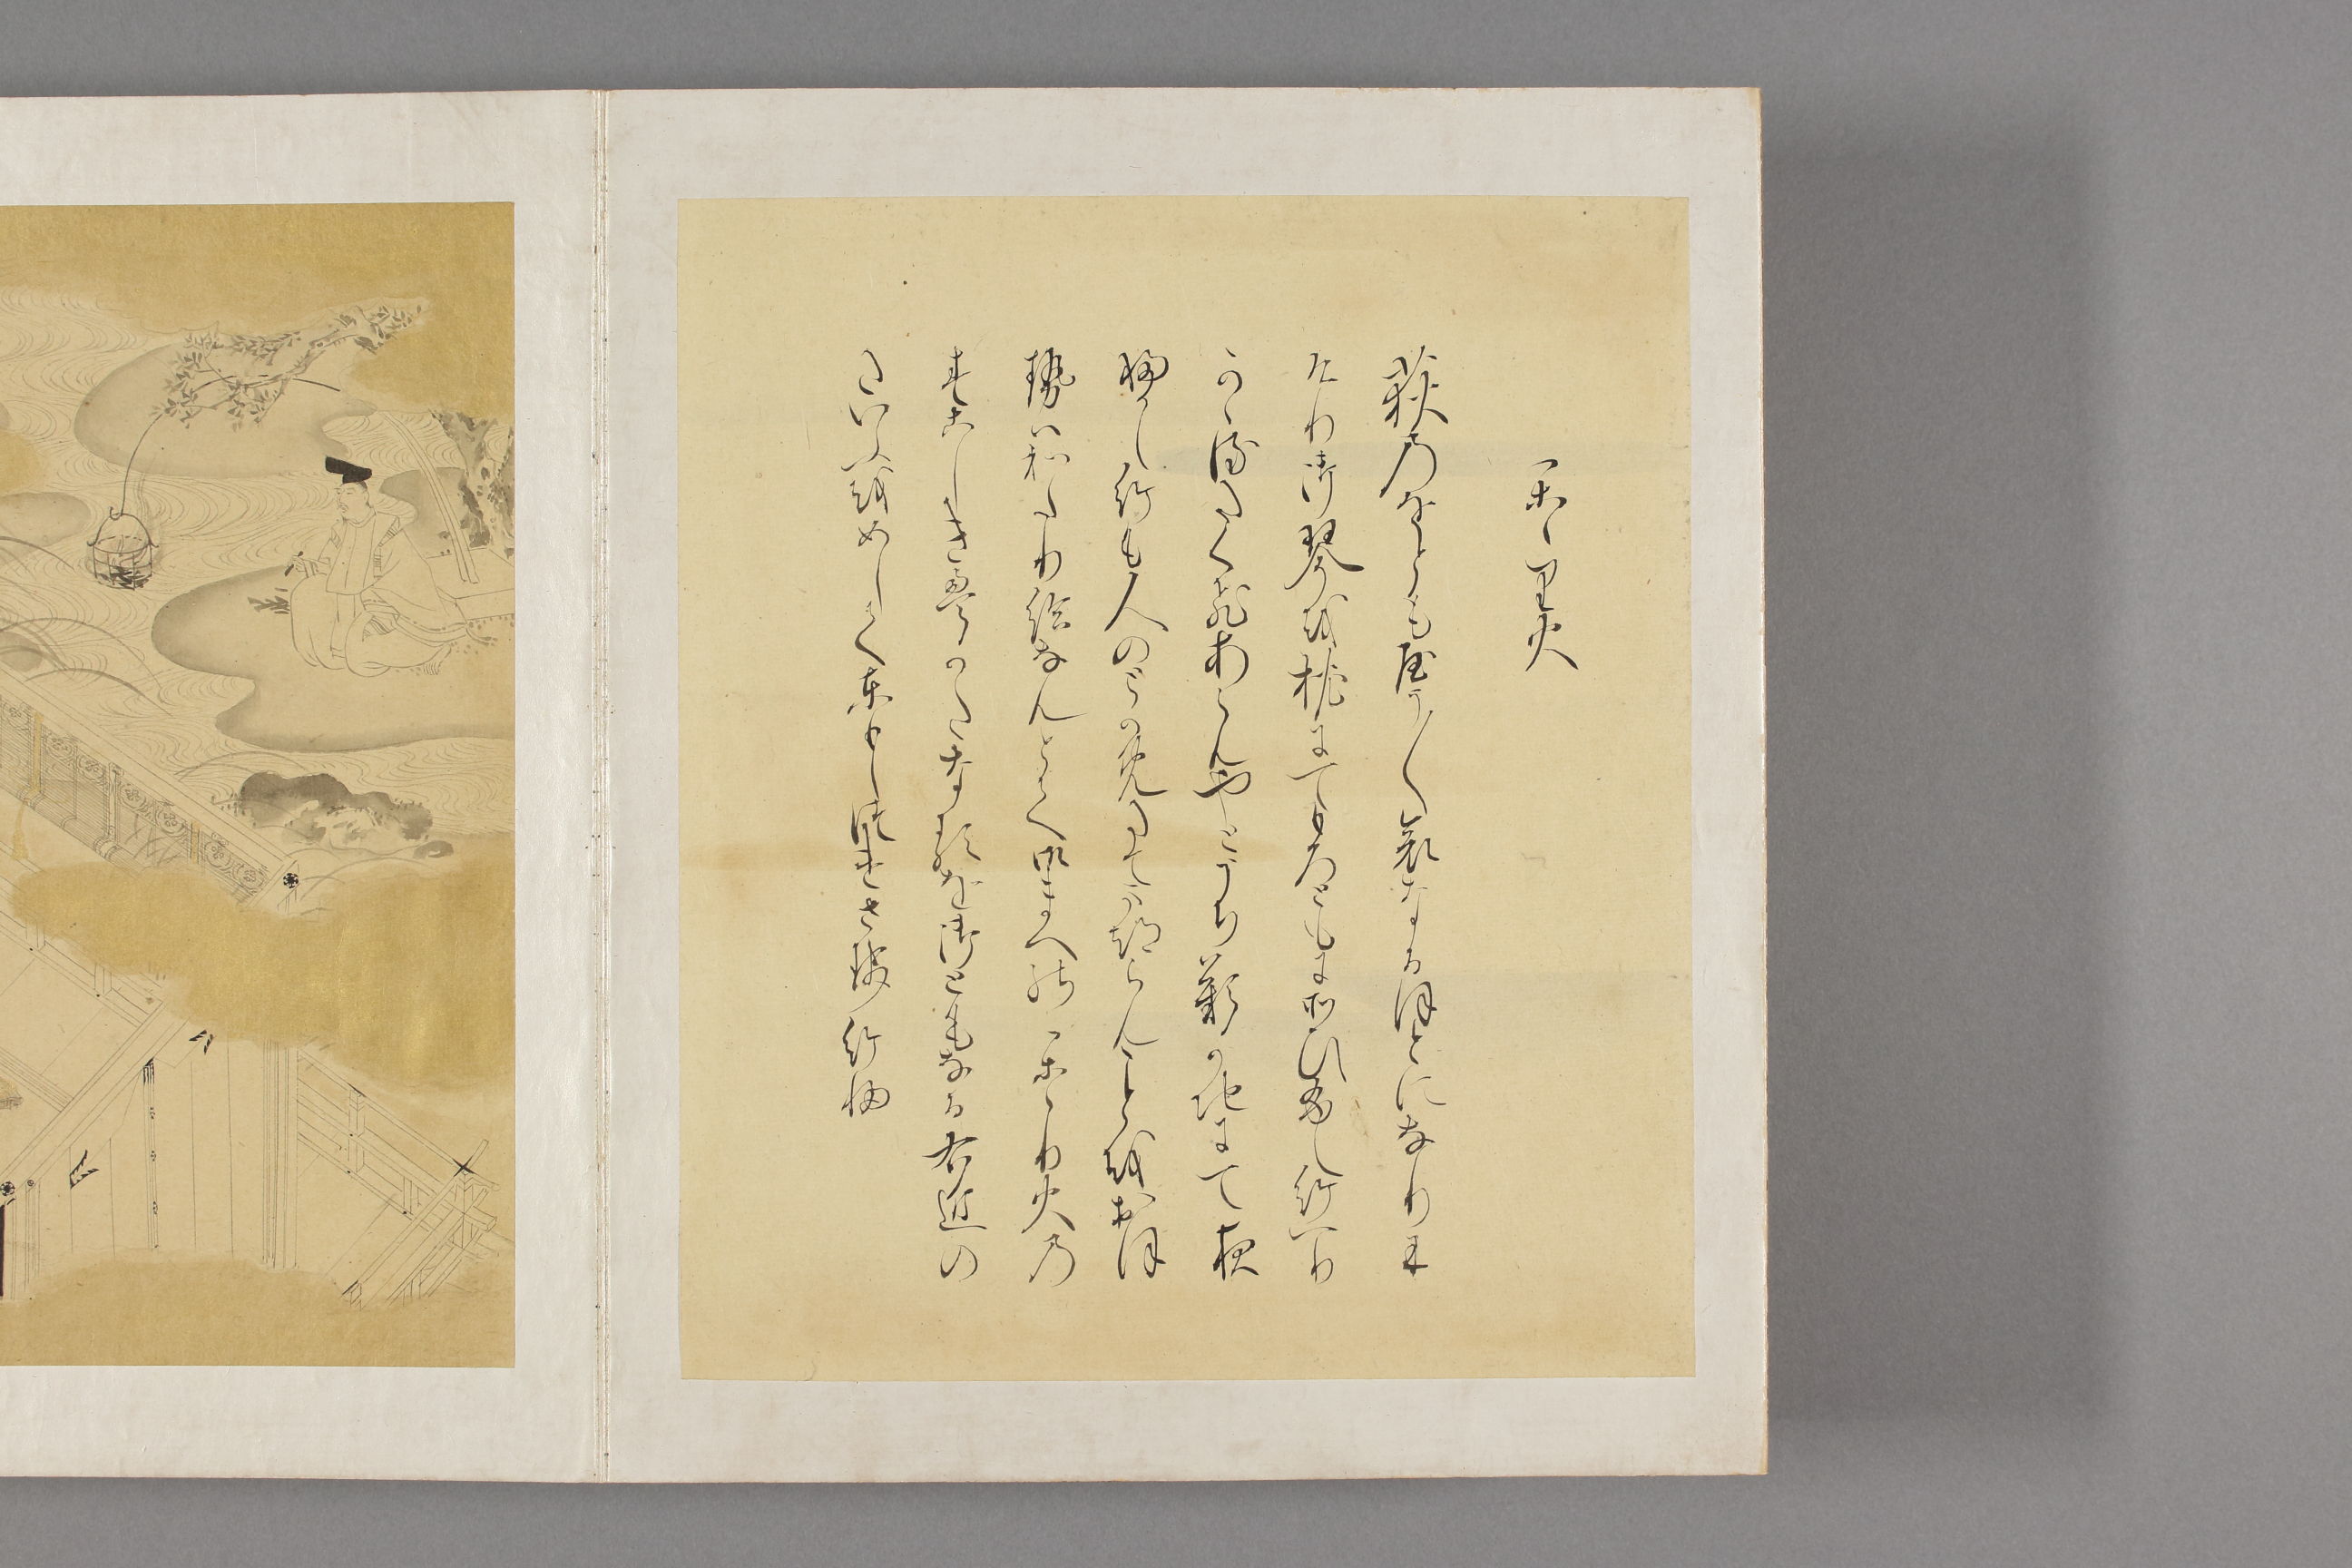 かゝり火
荻のをともやう〱哀なるほとになりに
けり御琴を枕にてもろともにそひふし給へり
かゝるたくひあらんやとうち歎かちにて夜
ふかし給も人のとかめたてまつらんことをおほ
せはわたり給なんとて御まへのかゝり火の
すこしきえかたなるを御ともなる右近の
たいふをめしてともしつけさせ給ふ